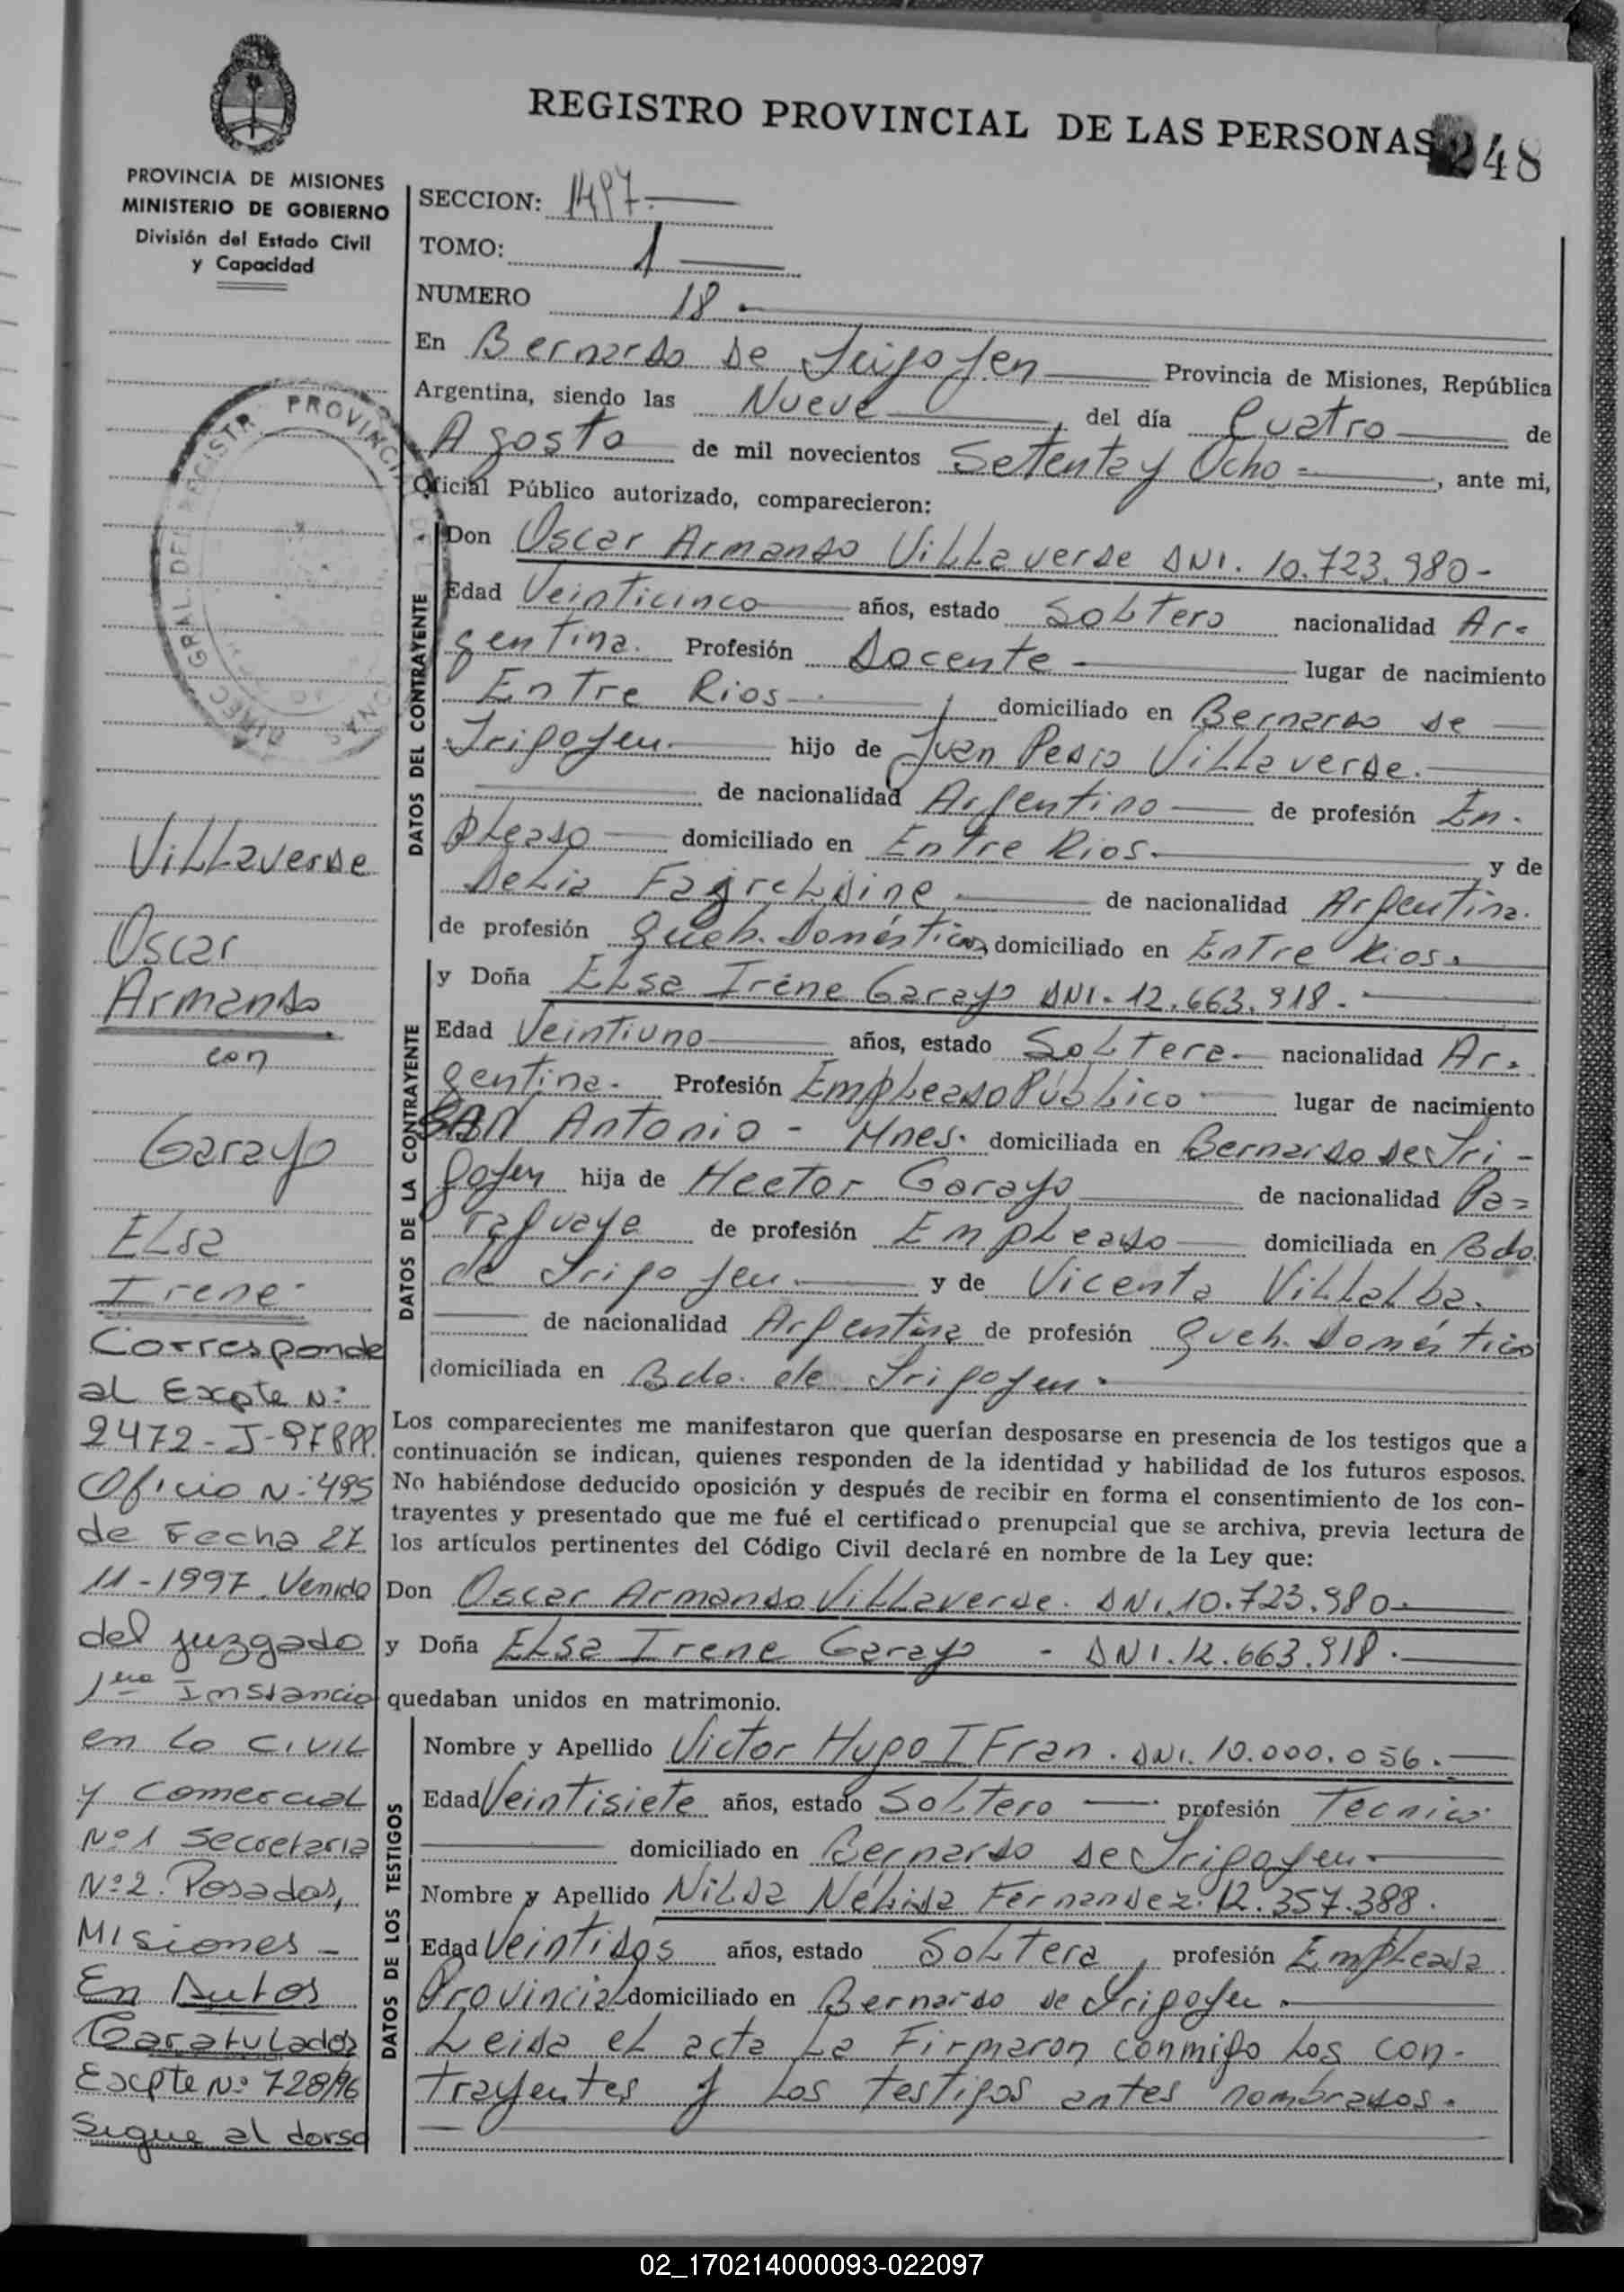 REGISTRO PROVINCIAL DE LAS PERSONAS 248
PROVINCIA DE MISIONES
MINISTERIO DE GOBIERNO
División del Estado Civil
y Capacidad
SECCION: 1497.
TOMO: 1
NUMERO 18
En Bernardo de Irigoyen Provincia de Misiones, República
Argentina, siendo las Nueve del día Cuatro de
Agosto de mil novecientos Setenta y Ocho =, ante mi,
Oficial Público autorizado, comparecieron:
DATOS DEL CONTRAYENTE
Don Oscar Armando Villaverde DNI. 10.723.980-
Edad Veinticinco años, estado Soltero nacionalidad Ar=
gentina. Profesión Docente lugar de nacimiento
Entre Rios domiciliado en Bernardo de
Irigoyen. hijo de Juan Pedro Villaverde.
de nacionalidad Argentino de profesión Em-
pleado domiciliado en Entre Rios. y de
Delia de nacionalidad Argentina.
de profesión Queh. Domésticos domiciliado en Entre Rios.
DATOS DE LA CONTRAYENTE
y Doña Elsa Irene Garayo DNI. 12.663.918.
Edad Veintiuno años, estado Soltera. nacionalidad Ar=
gentina. Profesión Empleado Público lugar de nacimiento
SAN Antonio - Mnes. domiciliada en Bernardo de Iri-
goyen hija de Hector Garayo de nacionalidad Pa=
raguaya de profesión Empleado domiciliada en Bdo.
de Irigoyen. y de Vicenta Villalba.
de nacionalidad Argentina de profesión Queh. Domésticos
domiciliada en Bdo. de Irigoyen.
Los comparecientes me manifestaron que querían desposarse en presencia de los testigos que a
continuación se indican, quienes responden de la identidad y habilidad de los futuros esposos.
No habiéndose deducido oposición y después de recibir en forma el consentimiento de los con-
trayentes y presentado que me fué el certificado prenupcial que se archiva, previa lectura de
los artículos pertinentes del Código Civil declaré en nombre de la Ley que:
Don Oscar Armando Villaverde. DNI. 10.723.980.
y Doña Elsa Irene Garayo - DNI. 12.663.918.
quedaban unidos en matrimonio.
DATOS DE LOS TESTIGOS
Nombre y Apellido Victor Hugo IFran. DNI. 10.000.056.
Edad Veintisiete años, estado Soltero profesión Tecnico.
domiciliado en Bernardo de Irigoyen.
Nombre y Apellido Nilda Nélida Fernandez. 12.357.388.
Edad Veintidos años, estado Soltera, profesión Empleada
Provincial domiciliado en Bernardo de Irigoyen.
Leida el acta la Firmaron conmigo los con-
trayentes y los testigos antes nombrados.
Villaverde
Oscar
Armando
con
Garayo
Elsa
Irene
Corresponde
al Expte Nº:
2472-J-97 RPP.
Oficio Nº: 495
de Fecha 27
11-1997. Venido
del juzgado
1era Instancia
en lo civil
y comercial
Nº1 secretaria
Nº2. Posadas,
Misiones -
En Autos
Caratulados
Expte Nº 728/96
Sigue al dorso
02_170214000093-022097